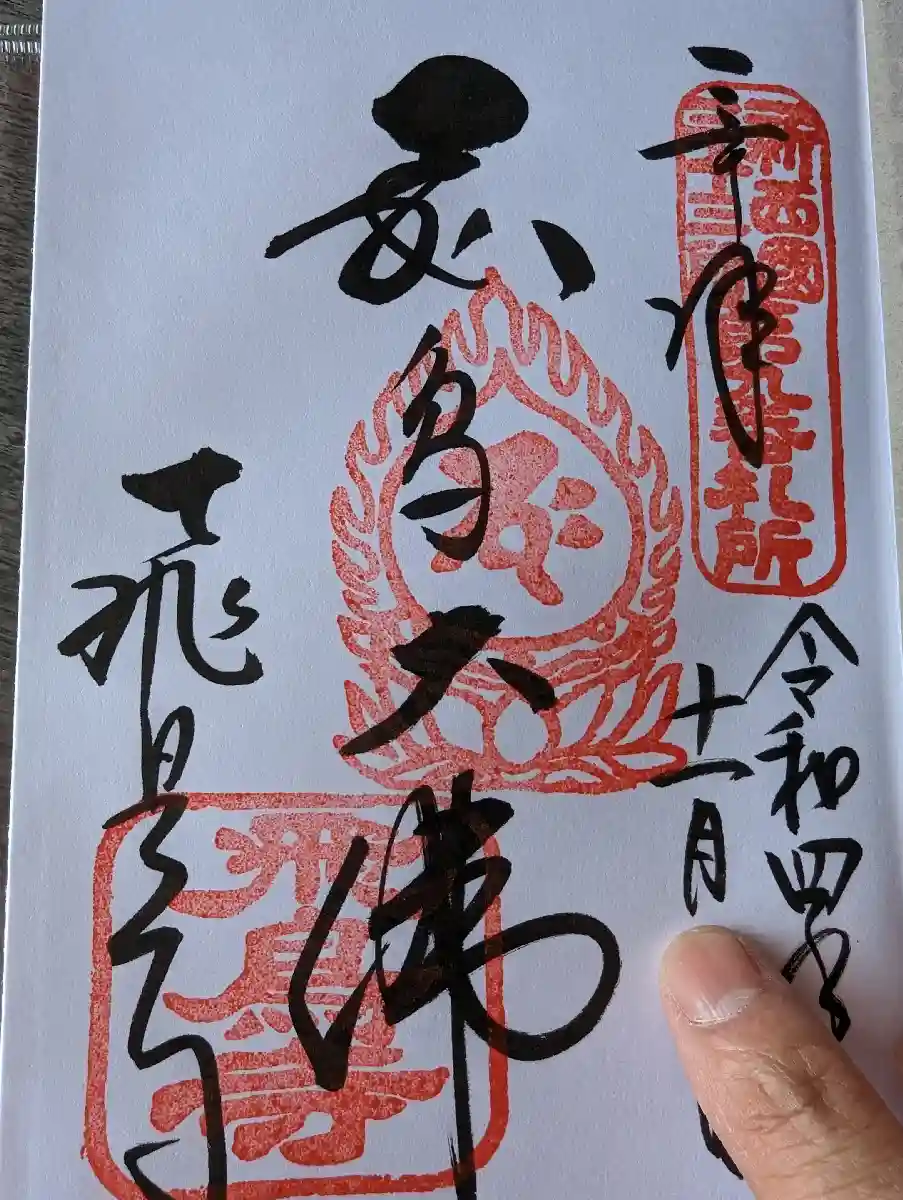 奉拝
新西國第九番札所
令和四年
十一月
飛鳥大佛
飛鳥寺
飛鳥寺